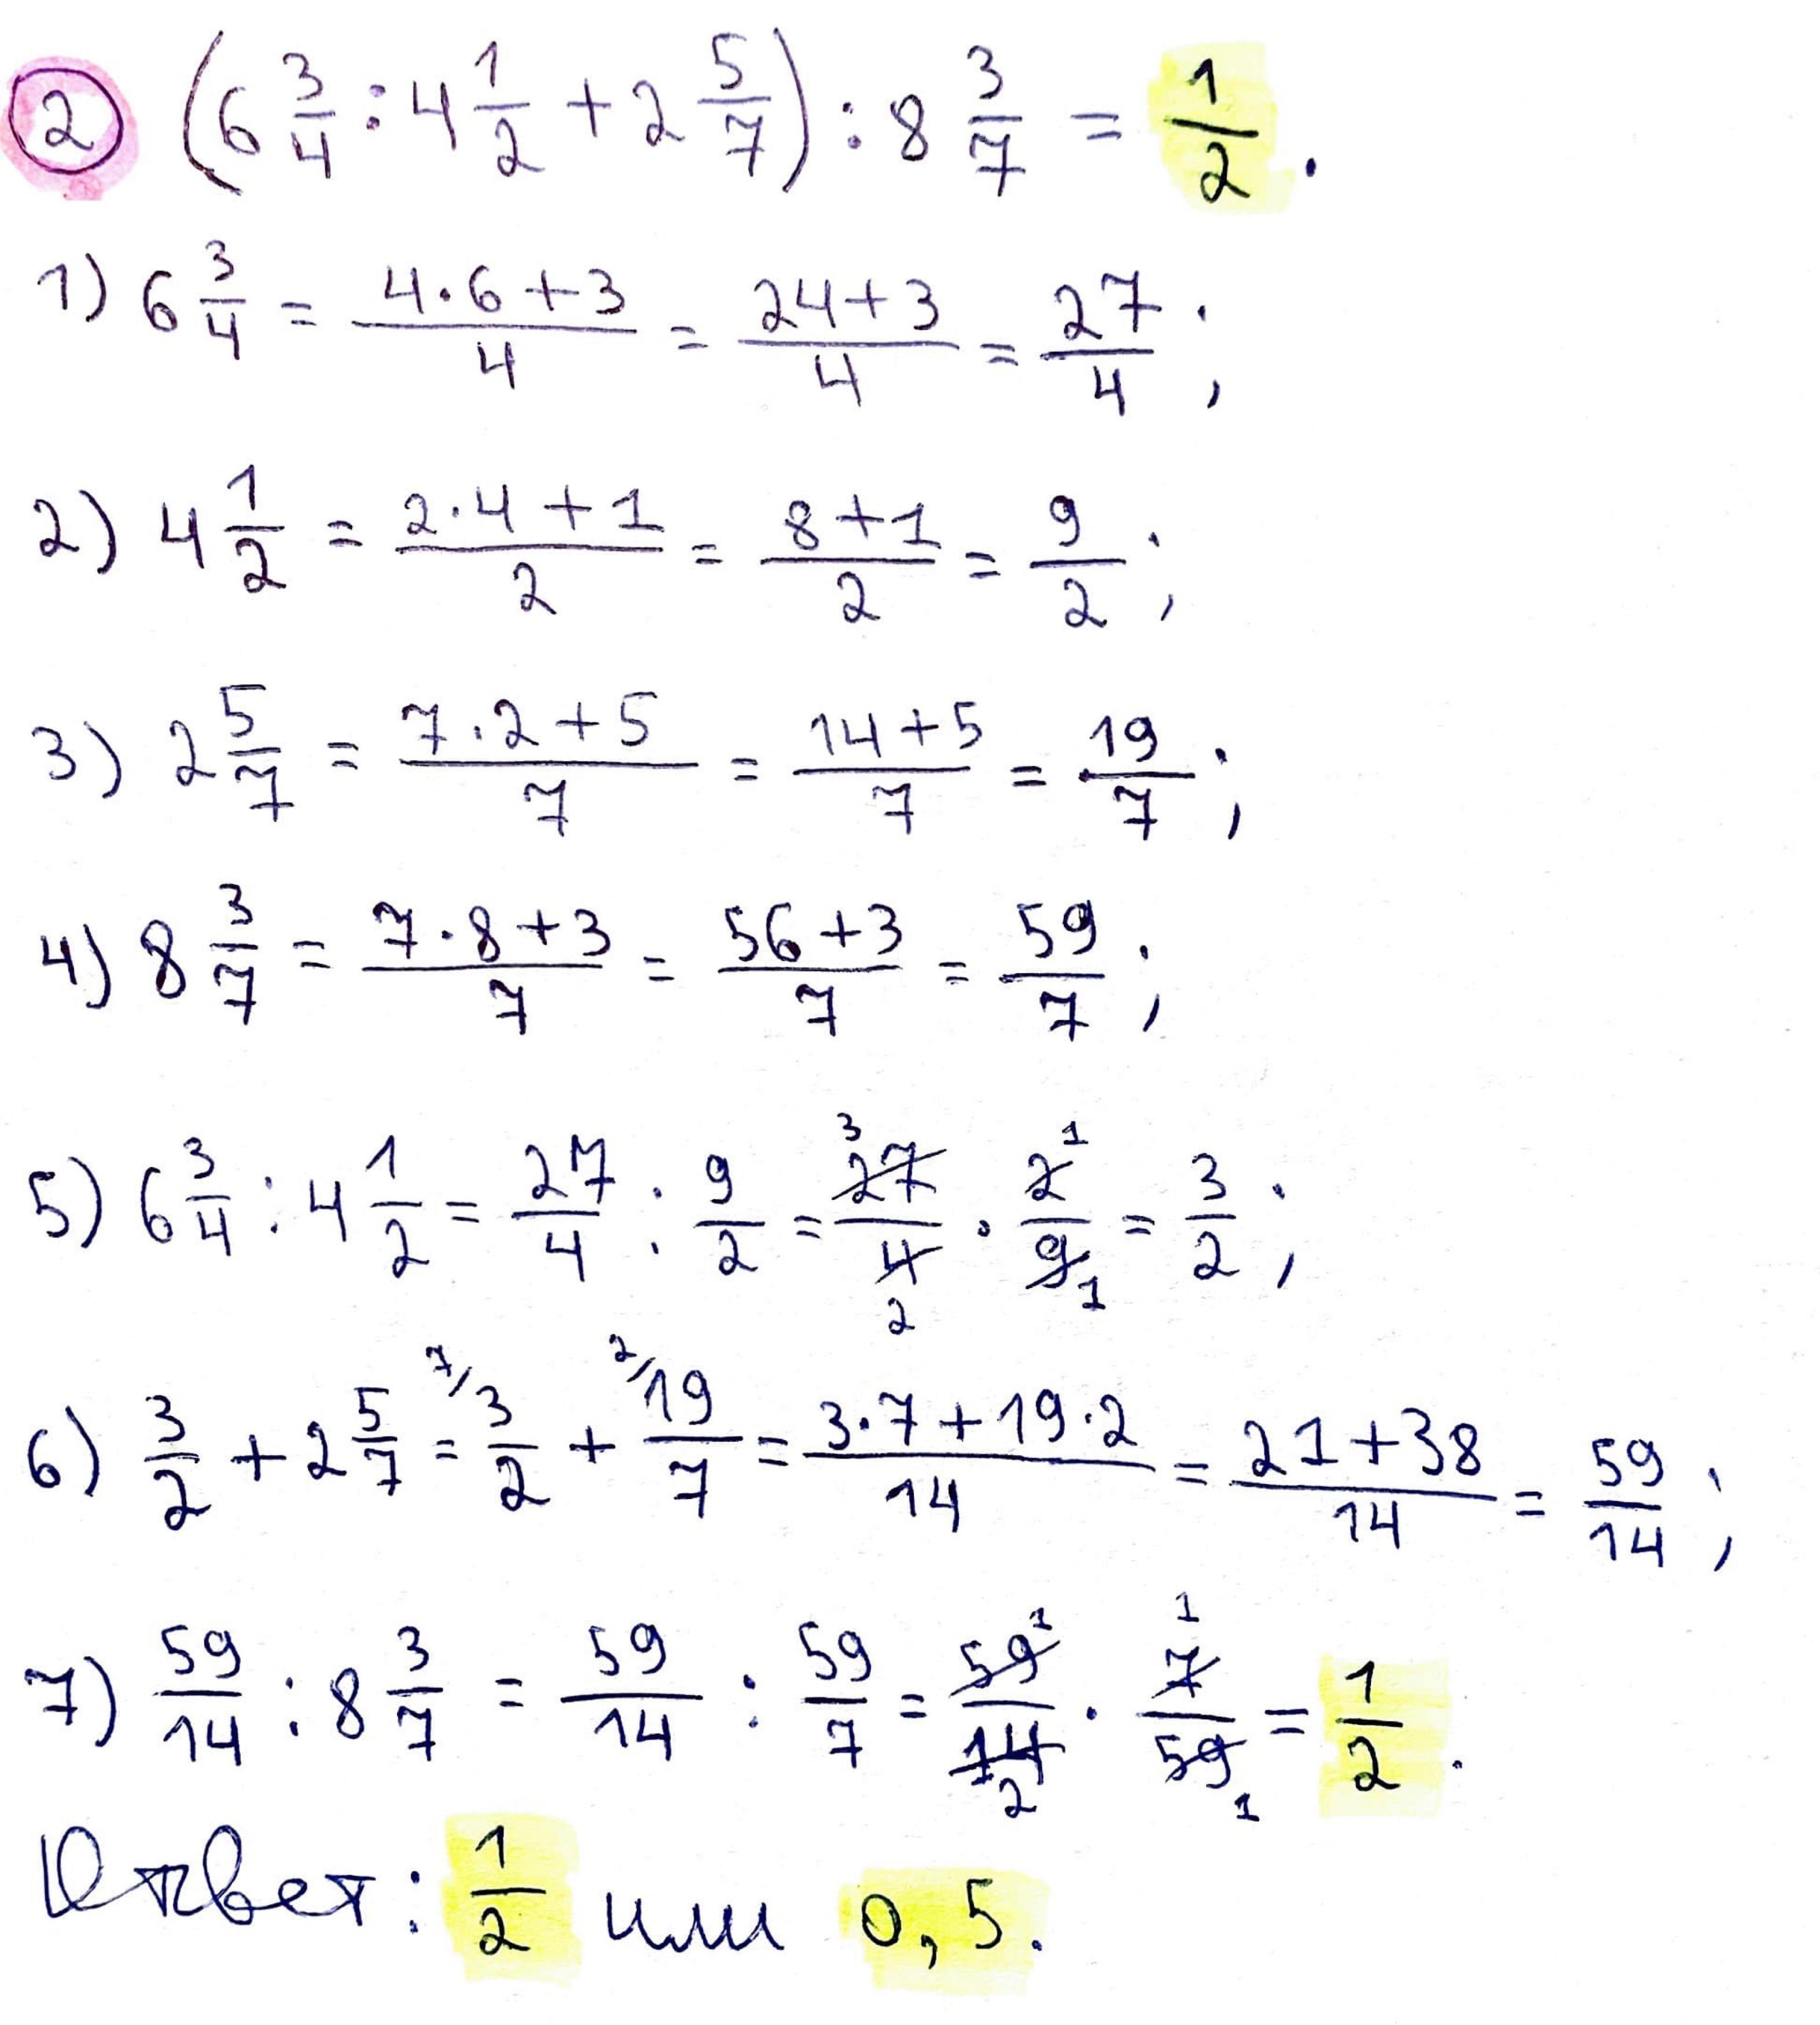 ② (6 3/4 : 4 1/2 + 2 5/7) : 8 3/7 = 1/2.
1) 6 3/4 = (4·6+3)/4 = (24+3)/4 = 27/4;
2) 4 1/2 = (2·4+1)/2 = (8+1)/2 = 9/2;
3) 2 5/7 = (7·2+5)/7 = (14+5)/7 = 19/7;
4) 8 3/7 = (7·8+3)/7 = (56+3)/7 = 59/7;
5) 6 3/4 : 4 1/2 = 27/4 : 9/2 = ³27/4₂ · 2¹/9₁ = 3/2;
6) 3/2 + 2 5/7 = ⁷⁄3/2 + ²⁄19/7 = (3·7+19·2)/14 = (21+38)/14 = 59/14;
7) 59/14 : 8 3/7 = 59/14 : 59/7 = 59¹/14₂ · 7¹/59₁ = 1/2.
Ответ: 1/2 или 0,5.